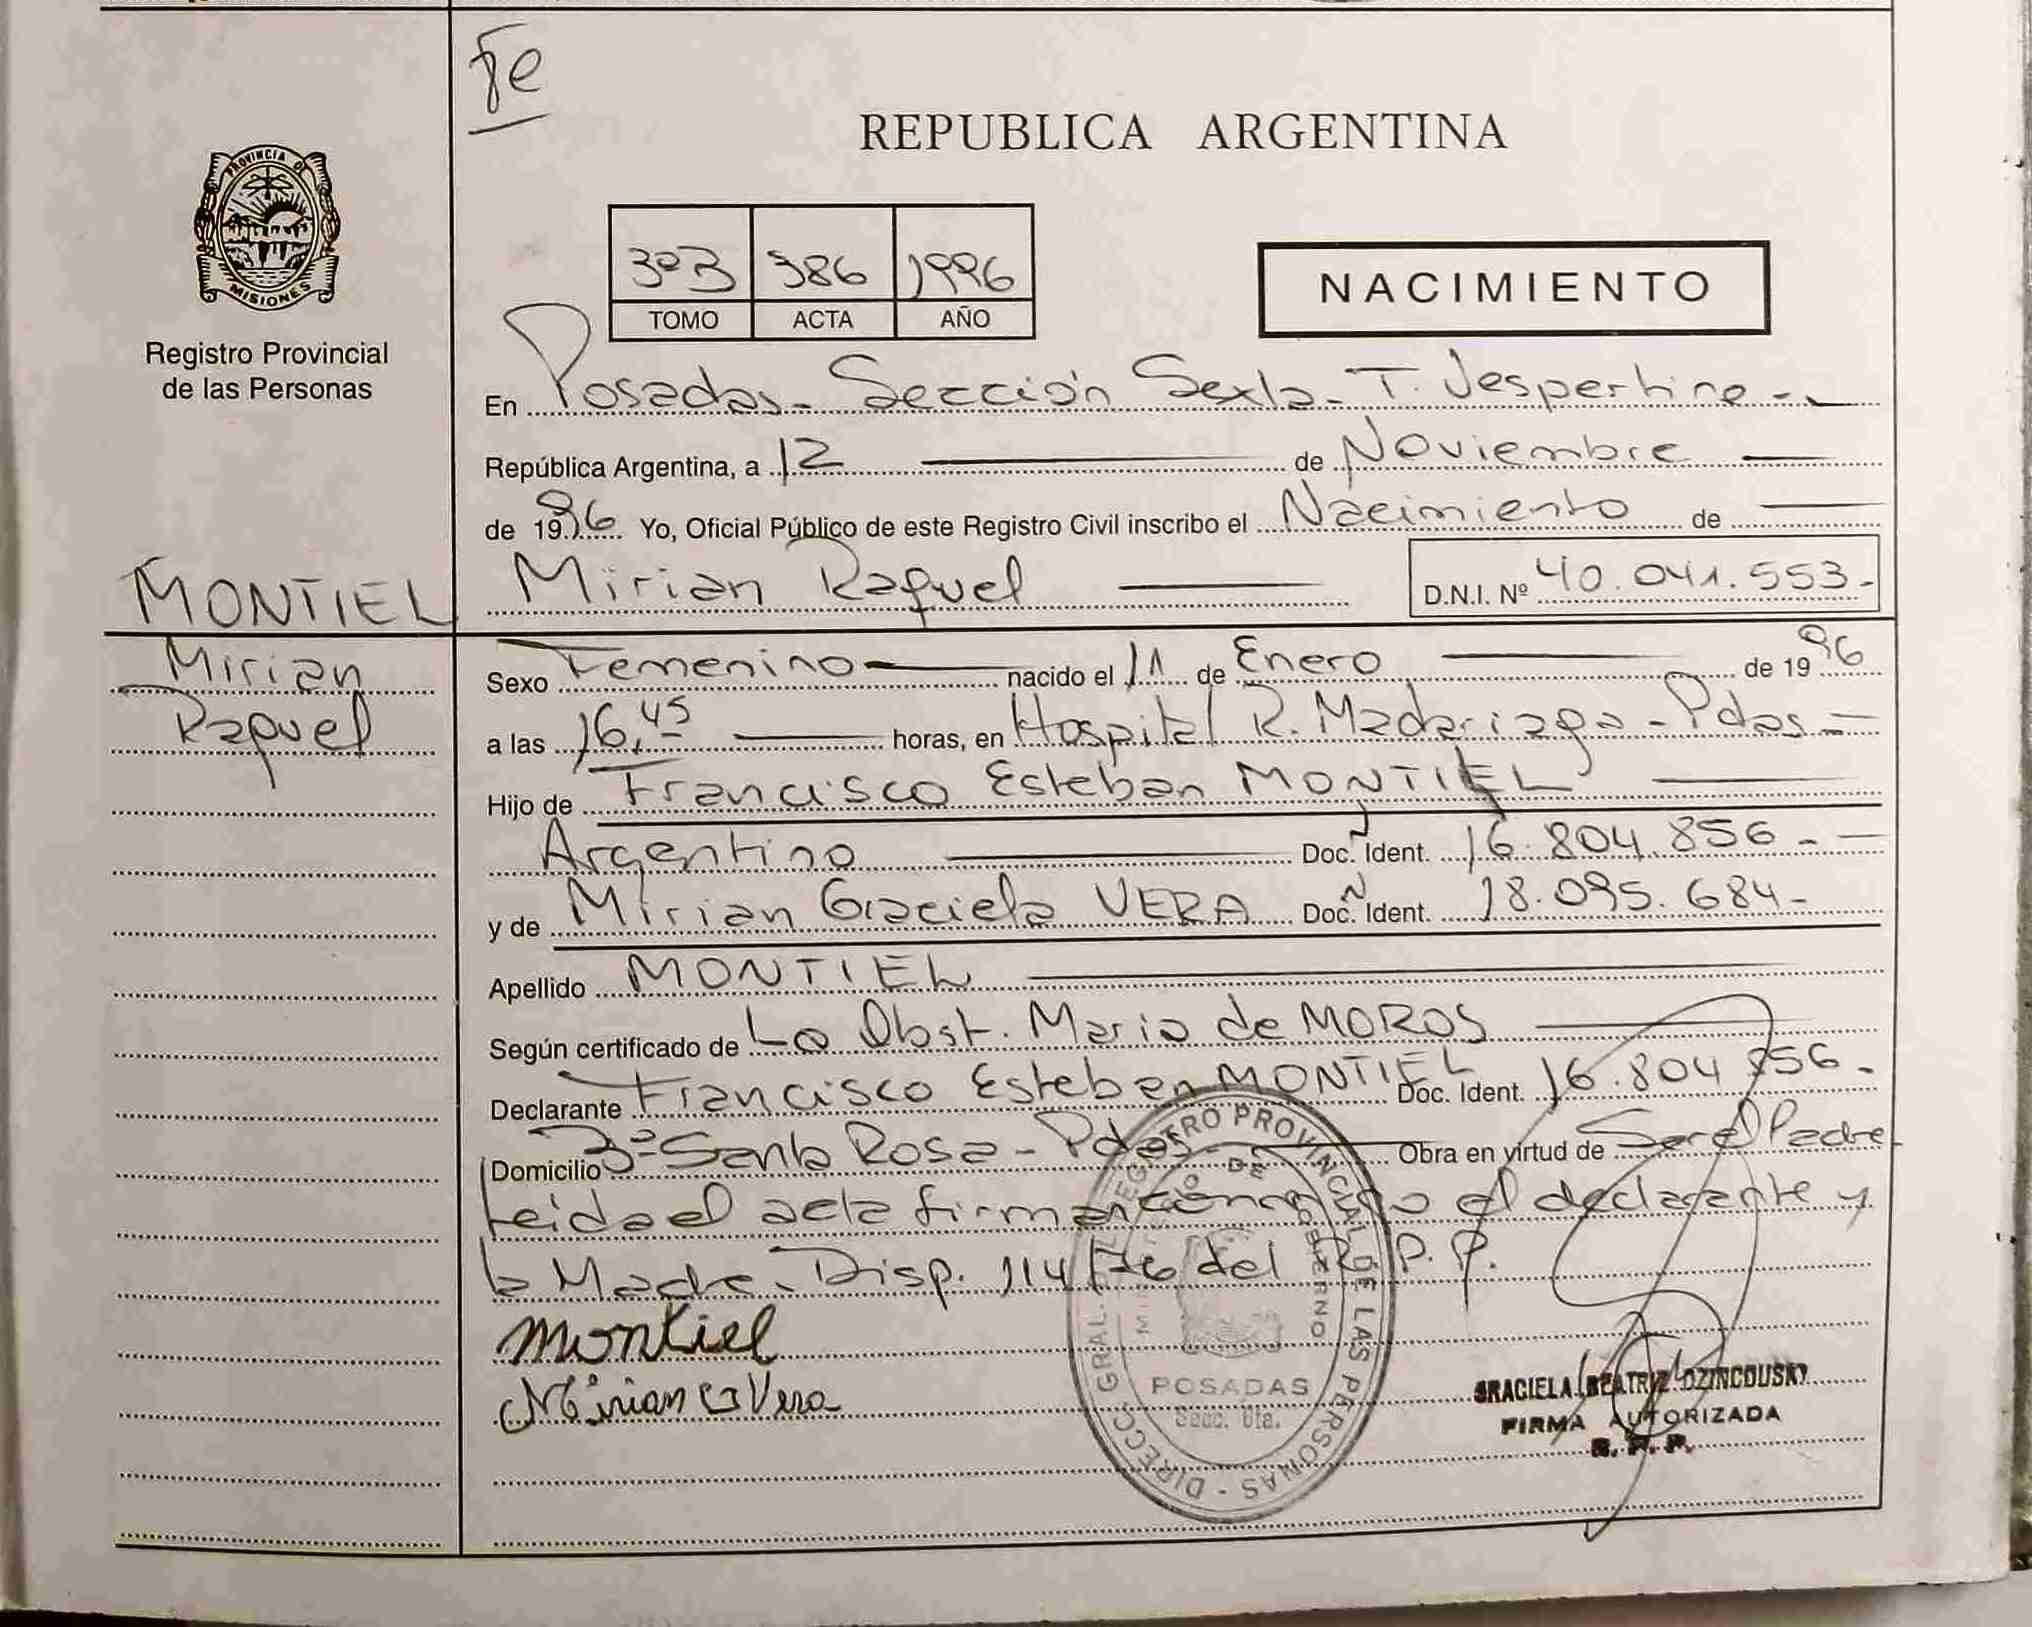 Fe
REPUBLICA ARGENTINA
PROVINCIA DE
MISIONES
Registro Provincial
de las Personas
3º3 986 1996
TOMO ACTA AÑO
NACIMIENTO
En Posadas - Sección Sexta - T. Vespertino -
República Argentina, a 12 de Noviembre
de 1996 Yo, Oficial Público de este Registro Civil inscribo el Nacimiento de
Mirian Raquel D.N.I. Nº 40.041.553.-
MONTIEL
Mirian
Raquel
Sexo Femenino nacido el 11 de Enero de 1996
a las 16,45 horas, en Hospital R. Madariaga - Pdas -
Hijo de Francisco Esteban MONTIEL
Argentino Doc. Ident. 16.804.856 -
y de Mirian Graciela VERA Doc. Ident. 18.095.684 -
Apellido MONTIEL
Según certificado de La Obst. Maria de MOROS
Declarante Francisco Esteban MONTIEL Doc. Ident. 16.804.856 -
Domicilio Bº Santa Rosa - Pdas - Obra en virtud de Ser el Padre
Leida el acta firman conmigo el declarante y
la Madre. Disp. 114/76 del R.P.P.
Montiel
Mirian G Vera
DIRECC. GRAL. DEL REGISTRO PROVINCIAL DE LAS PERSONAS
MINISTERIO DE GOBIERNO
POSADAS
Secc. 6ta.
GRACIELA BEATRIZ OZINCOUSKY
FIRMA AUTORIZADA
R. P. P.